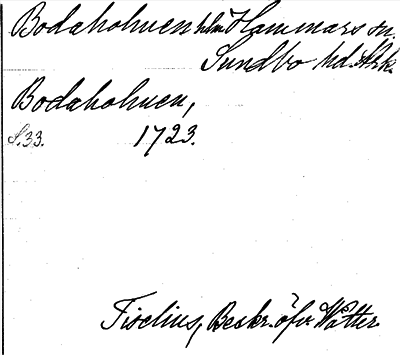 Bodaholmen hlm Hammars sn.
Sundbo hd. Ørk.
Bodaholmen,
S.33. 1723.
Tiselius, Beskr. öfv. Wätter